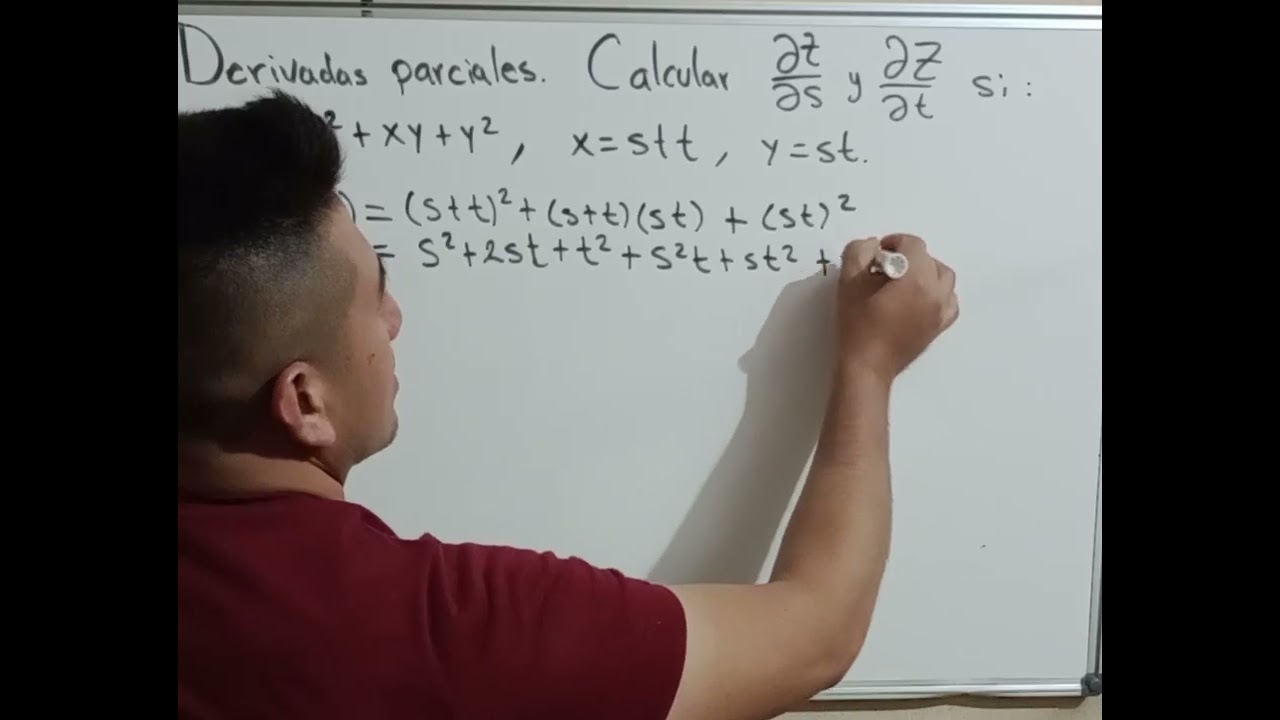 Derivadas parciales. Calcular ∂z/∂s y ∂z/∂t si:
² + xy + y², x = s+t, y = st.
) = (s+t)² + (s+t)(st) + (st)²
= s² + 2st + t² + s²t + st² +